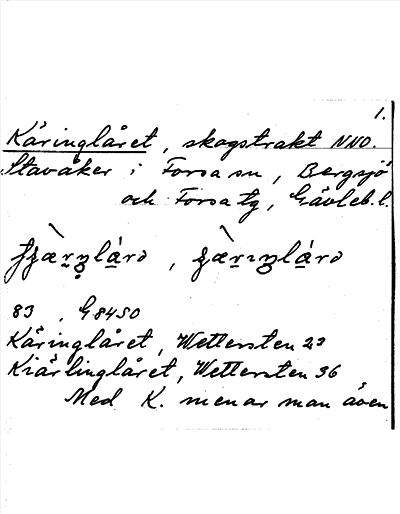 1.
Käringlåret, skogstrakt NNO.
Stavåker i Forsa sn, Bergsjö
och Forsa tg, Gävleb. l.
83, G8450
Käringlåret, Wettersten 23
Kiärlinglåret, Wettersten 36
Med K. menar man även